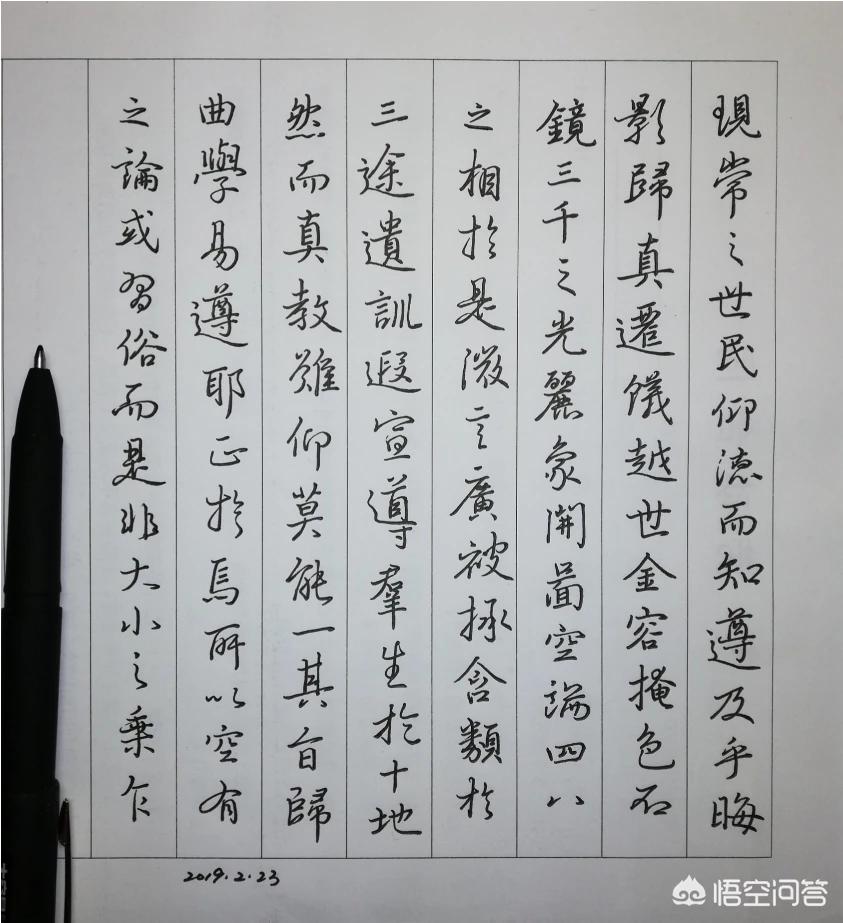 現常之世民仰德而知遵及乎晦
影歸真遷儀越世金容掩色不
鏡三千之光麗象開圖空端四八
之相於是微言廣被拯含類於
三途遺訓遐宣導羣生於十地
然而真教難仰莫能一其旨歸
曲學易遵耶正於焉所以空有
之論或習俗而是非大小之乘乍
2019.2.23
悟空问答